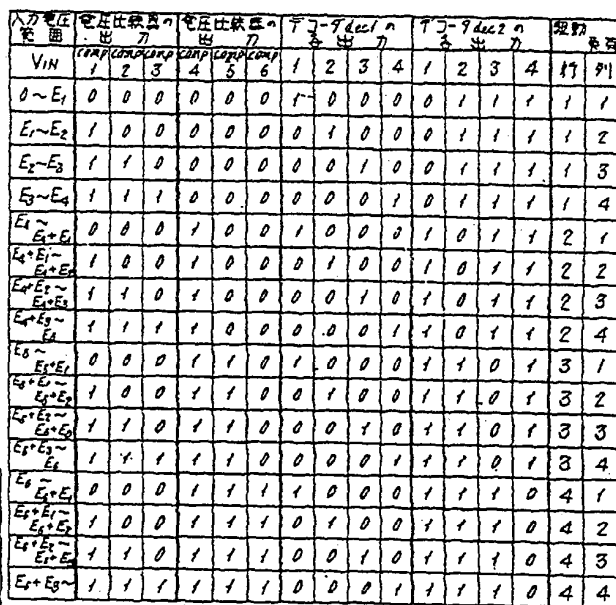 入力電圧範囲 電圧比較器の出力 電圧比較器の出力 デコーダdec1の各出力 デコーダdec2の各出力 駆動
VIN comp1 comp2 comp3 comp4 comp5 comp6 1 2 3 4 1 2 3 4 行 列
0~E1 0 0 0 0 0 0 1 0 0 0 0 1 1 1 1 1
E1~E2 1 0 0 0 0 0 0 1 0 0 0 1 1 1 1 2
E2~E3 1 1 0 0 0 0 0 0 1 0 0 1 1 1 1 3
E3~E4 1 1 1 0 0 0 0 0 0 1 0 1 1 1 1 4
E4~E4+E1 0 0 0 1 0 0 1 0 0 0 1 0 1 1 2 1
E4+E1~E4+E2 1 0 0 1 0 0 0 1 0 0 1 0 1 1 2 2
E4+E2~E4+E3 1 1 0 1 0 0 0 0 1 0 1 0 1 1 2 3
E4+E3~E5 1 1 1 1 0 0 0 0 0 1 1 0 1 1 2 4
E5~E5+E1 0 0 0 1 1 0 1 0 0 0 1 1 0 1 3 1
E5+E1~E5+E2 1 0 0 1 1 0 0 1 0 0 1 1 0 1 3 2
E5+E2~E5+E3 1 1 0 1 1 0 0 0 1 0 1 1 0 1 3 3
E5+E3~E6 1 1 1 1 1 0 0 0 0 1 1 1 0 1 3 4
E6~E6+E1 0 0 0 1 1 1 1 0 0 0 1 1 1 0 4 1
E6+E1~E6+E2 1 0 0 1 1 1 0 1 0 0 1 1 1 0 4 2
E6+E2~E6+E3 1 1 0 1 1 1 0 0 1 0 1 1 1 0 4 3
E6+E3~ 1 1 1 1 1 1 0 0 0 1 1 1 1 0 4 4